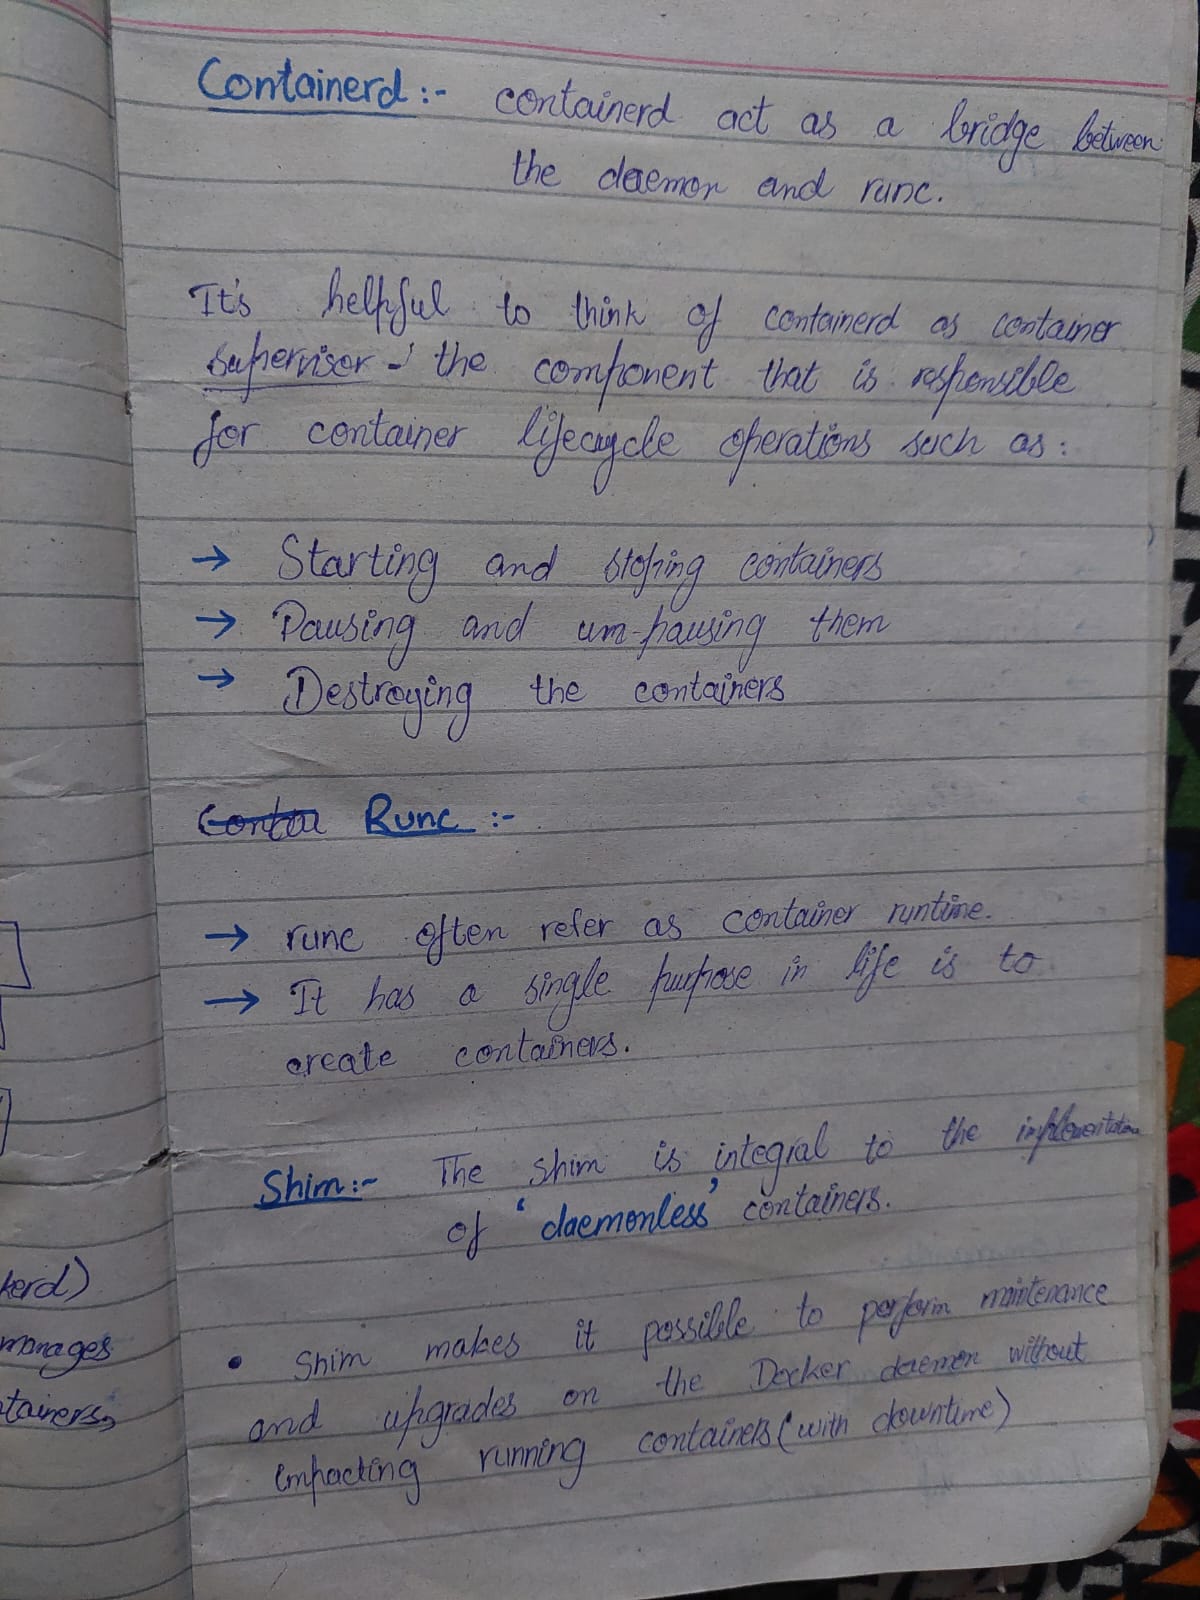 Containerd :- containerd act as a bridge between
the daemon and runc.
It's helpful to think of containerd as container
supervisor - the component that is responsible
for container lifecycle operations such as :
→ Starting and stoping containers
→ Pausing and um-pausing them
→ Destroying the containers
Contai Runc :-
→ runc often refer as container runtime.
→ It has a single purpose in life is to
create containers.
Shim :- The shim is integral to the implementation
of 'daemonless' containers.
• Shim makes it possible to perform maintenance
and upgrades on the Docker daemon without
impacting running containers (with downtime)
kerd)
manages
tainers,